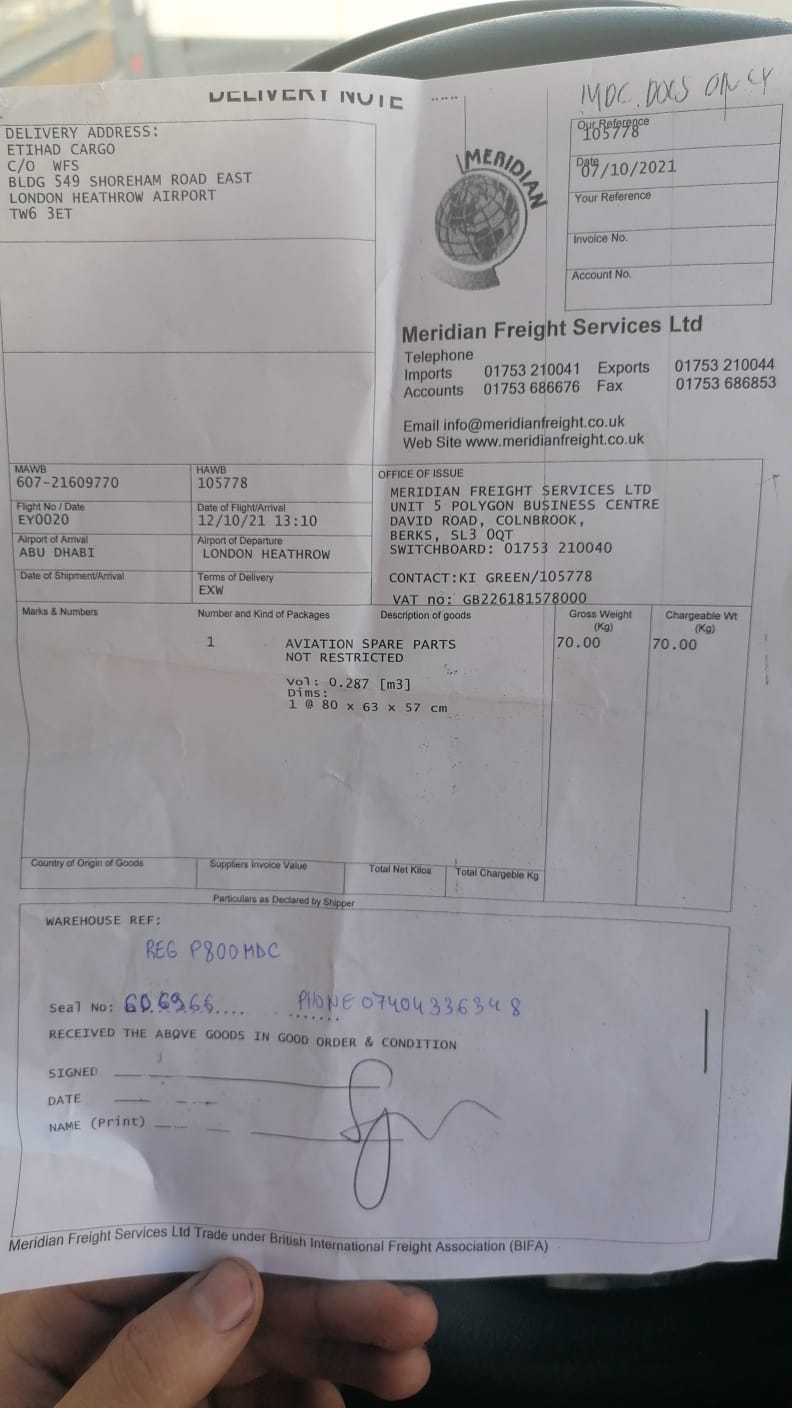 DELIVERY NOTE
MDC DOCS ONLY
DELIVERY ADDRESS:
ETIHAD CARGO
C/O WFS
BLDG 549 SHOREHAM ROAD EAST
LONDON HEATHROW AIRPORT
TW6 3ET
MERIDIAN
Our Reference
105778
Date
07/10/2021
Your Reference
Invoice No.
Account No.
Meridian Freight Services Ltd
Telephone
Imports 01753 210041 Exports 01753 210044
Accounts 01753 686676 Fax 01753 686853
Email info@meridianfreight.co.uk
Web Site www.meridianfreight.co.uk
MAWB
607-21609770
HAWB
105778
Flight No / Date
EY0020
Date of Flight/Arrival
12/10/21 13:10
Airport of Arrival
ABU DHABI
Airport of Departure
LONDON HEATHROW
Date of Shipment/Arrival
Terms of Delivery
EXW
OFFICE OF ISSUE
MERIDIAN FREIGHT SERVICES LTD
UNIT 5 POLYGON BUSINESS CENTRE
DAVID ROAD, COLNBROOK,
BERKS, SL3 0QT
SWITCHBOARD: 01753 210040
CONTACT:KI GREEN/105778
VAT no: GB226181578000
Marks & Numbers Number and Kind of Packages Description of goods Gross Weight (Kg) Chargeable Wt (Kg)
1 AVIATION SPARE PARTS 70.00 70.00
NOT RESTRICTED
Vol: 0.287 [m3]
Dims:
1 @ 80 x 63 x 57 cm
Country of Origin of Goods Suppliers Invoice Value Total Net Kilos Total Chargeble Kg
Particulars as Declared by Shipper
WAREHOUSE REF:
REG P800MDC
Seal No: 606966.... PHONE 07404336348
RECEIVED THE ABOVE GOODS IN GOOD ORDER & CONDITION
SIGNED
DATE
NAME (Print)
Meridian Freight Services Ltd Trade under British International Freight Association (BIFA)